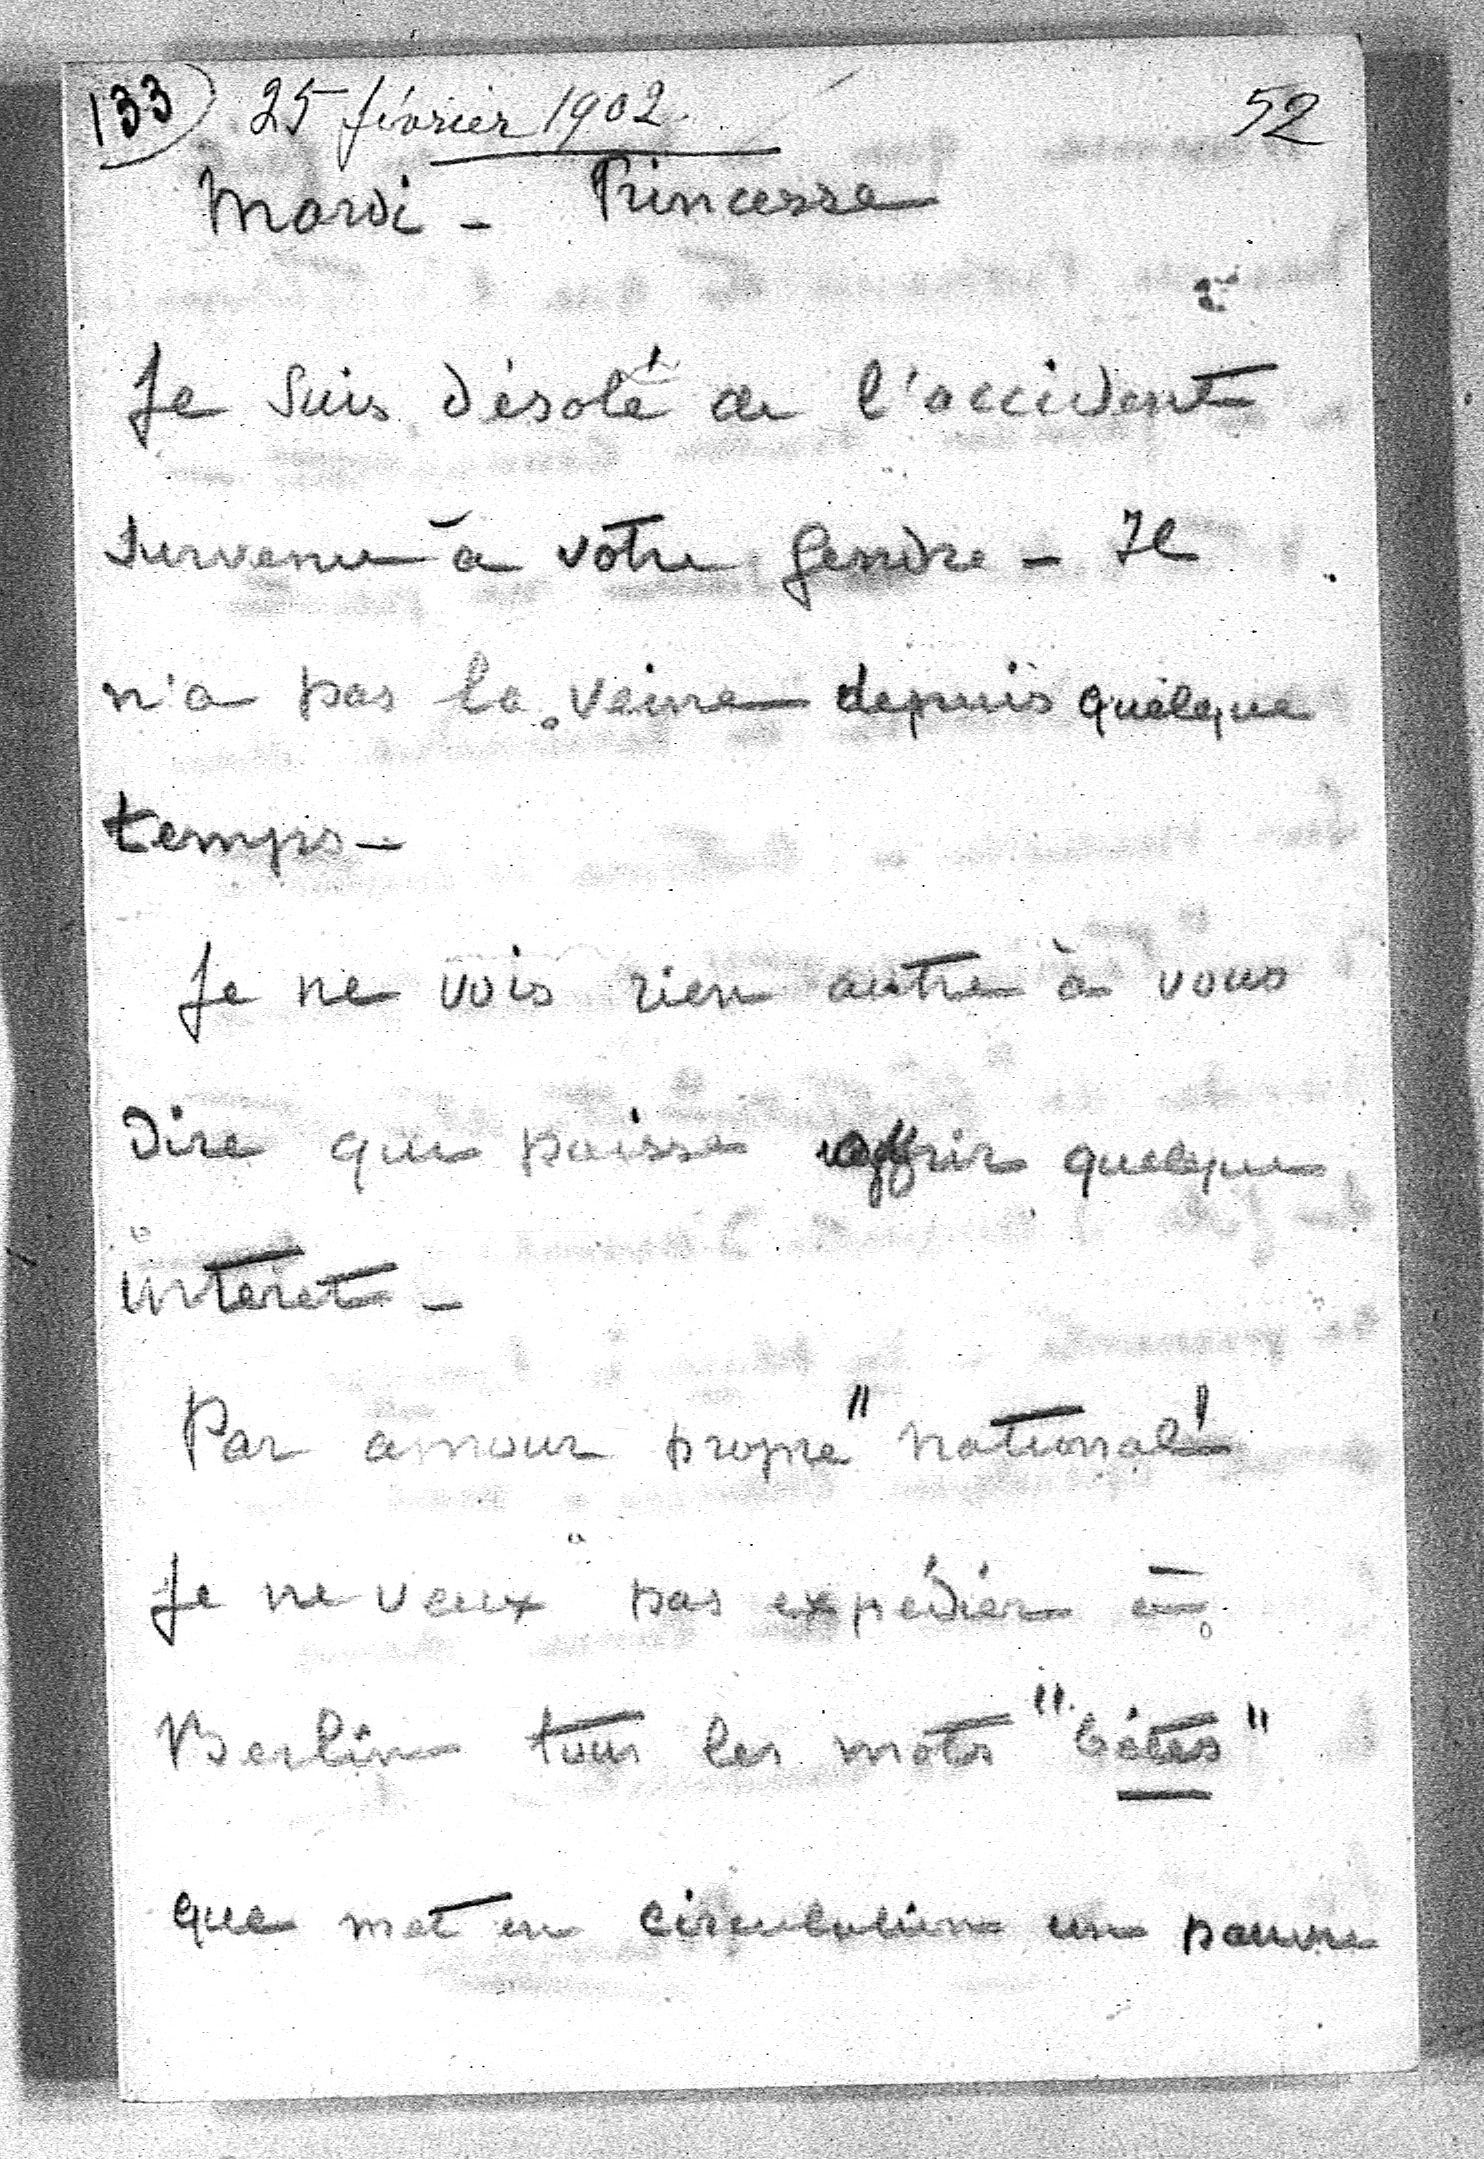 133) 25 février 1902. 52
Mardi - Princesse
Je suis désolé de l'accident
survenu à votre gendre - Il
n'a pas la veine depuis quelque
temps -
Je ne vois rien autre à vous
dire que puisse offrir quelque
intérêt -
Par amour propre "national"
je ne veux pas expédier à
Berlin tous les mots "bêtes"
que met en circulation un pauvre